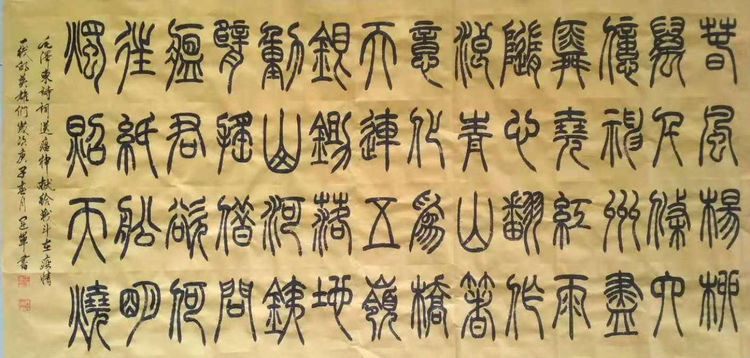 萅風楊柳
萬千條六
億神州盡
舜堯紅雨
隨心翻作
浪青山著
意化為橋
天連五嶺
銀鋤落地
動山河鐵
臂搖借問
瘟君欲何
往紙船明
燭照天燒
毛澤東詩詞送瘟神獻給戰斗在疫情
一線的英雄們歲次庚子春月軍書